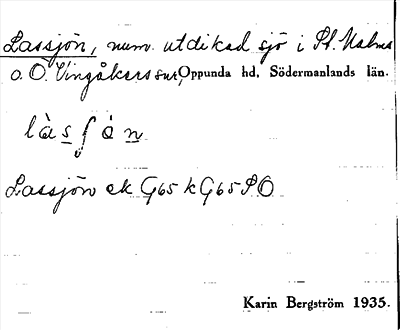 Lassjön, num. utdikad sjö i St. Malms
o. Ö. Vingåkers snr, Oppunda hd, Södermanlands län.
là s ʃ ὰ n
Lassjön ek G65 k G65 SO
Karin Bergström 1935.